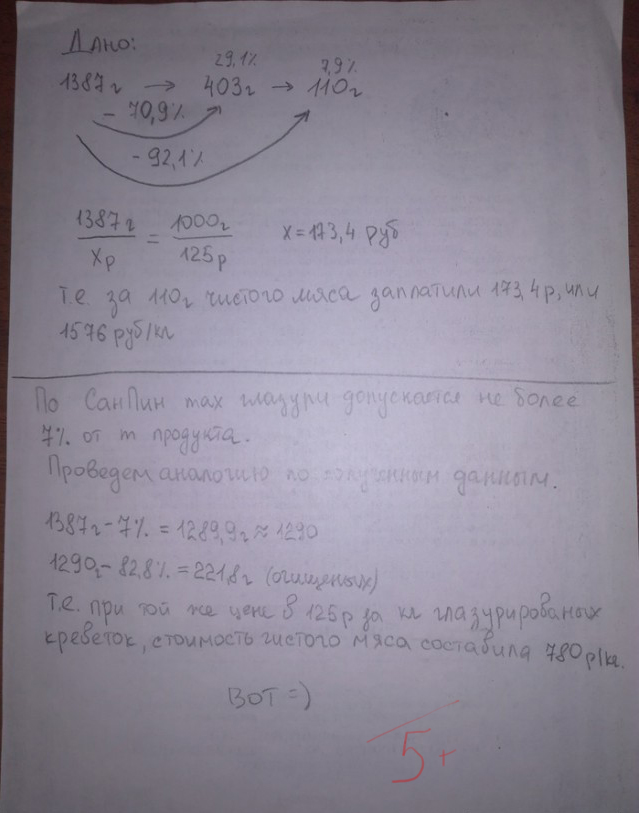 Дано:
29,1% 7,9%
1387г → 403г → 110г
- 70,9%
- 92,1%
1387г / xр = 1000г / 125р x=173,4 руб
т.е. за 110г чистого мяса заплатили 173,4р, или
1576 руб/кг
По СанПин max глазури допускается не более
7% от m продукта.
Проведем аналогию по полученным данным.
1387г-7% = 1289,9г ≈ 1290
1290г-82,8% = 221,8г (очищеных)
т.е. при той же цене в 125р за кг глазурированых
креветок, стоимость чистого мяса составила 780р/кг.
ВОТ =)
5+